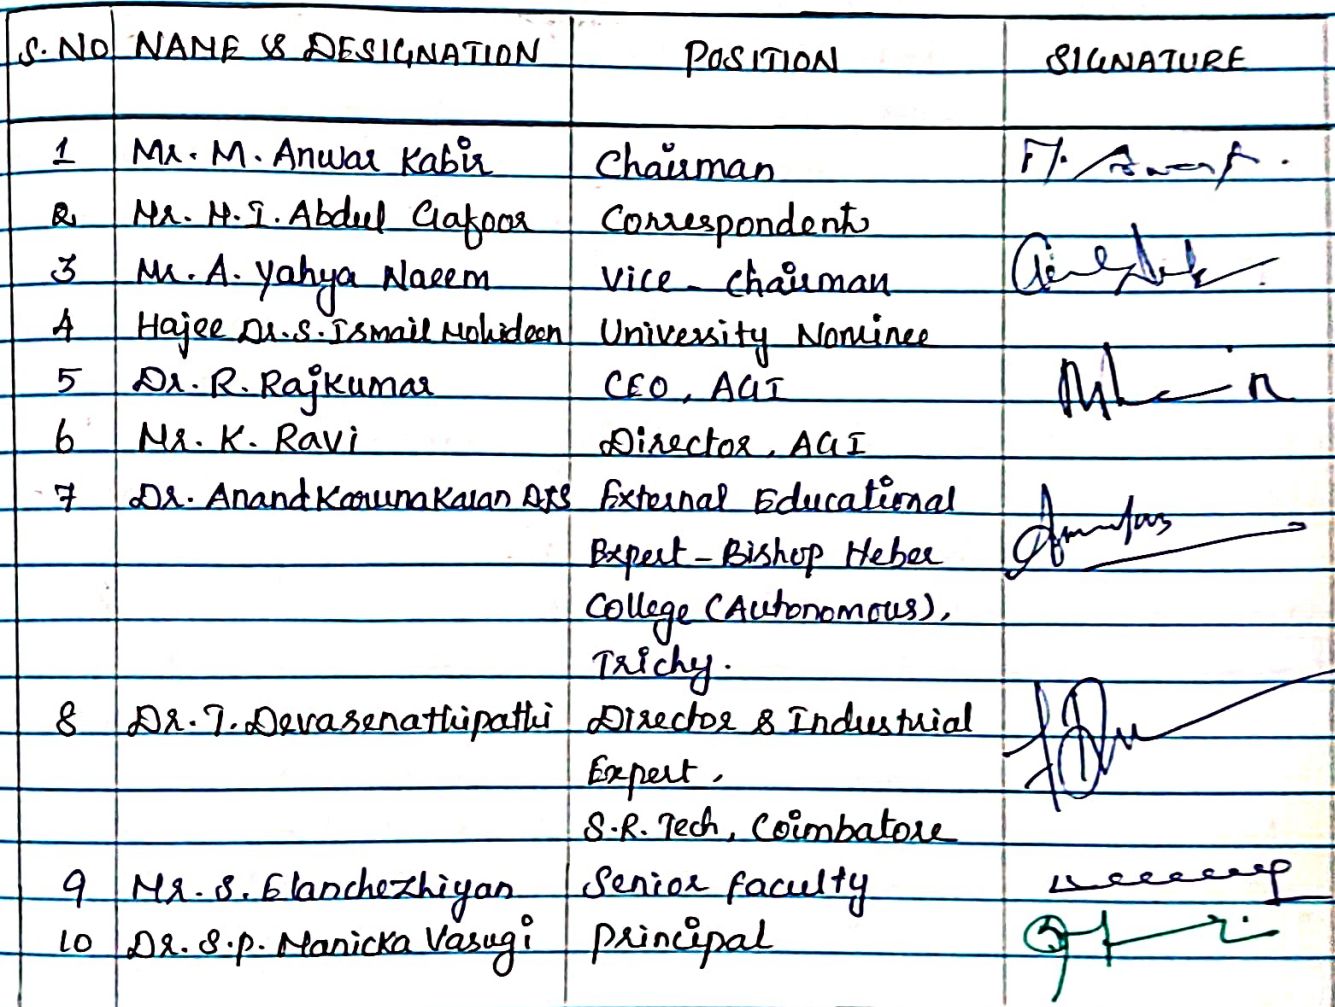 S.NO NAME & DESIGNATION POSITION SIGNATURE
1 Mr. M. Anwar Kabir Chairman
2 Mr. M.I. Abdul Gafoor Correspondent
3 Mr. A. Yahya Naeem Vice - Chairman
4 Hajee Dr. S. Ismail Mohideen University Nominee
5 Dr. R. Rajkumar CEO, AGI
6 Mr. K. Ravi Director, AGI
7 Dr. Anand Karunakaran External Educational
Expert - Bishop Heber
College (Autonomous),
Trichy.
8 Dr. T. Devasenathipathi Director & Industrial
Expert,
S.R. Tech, Coimbatore
9 Mr. S. Elanchezhiyan Senior faculty
10 Dr. S.P. Manicka Vasugi Principal